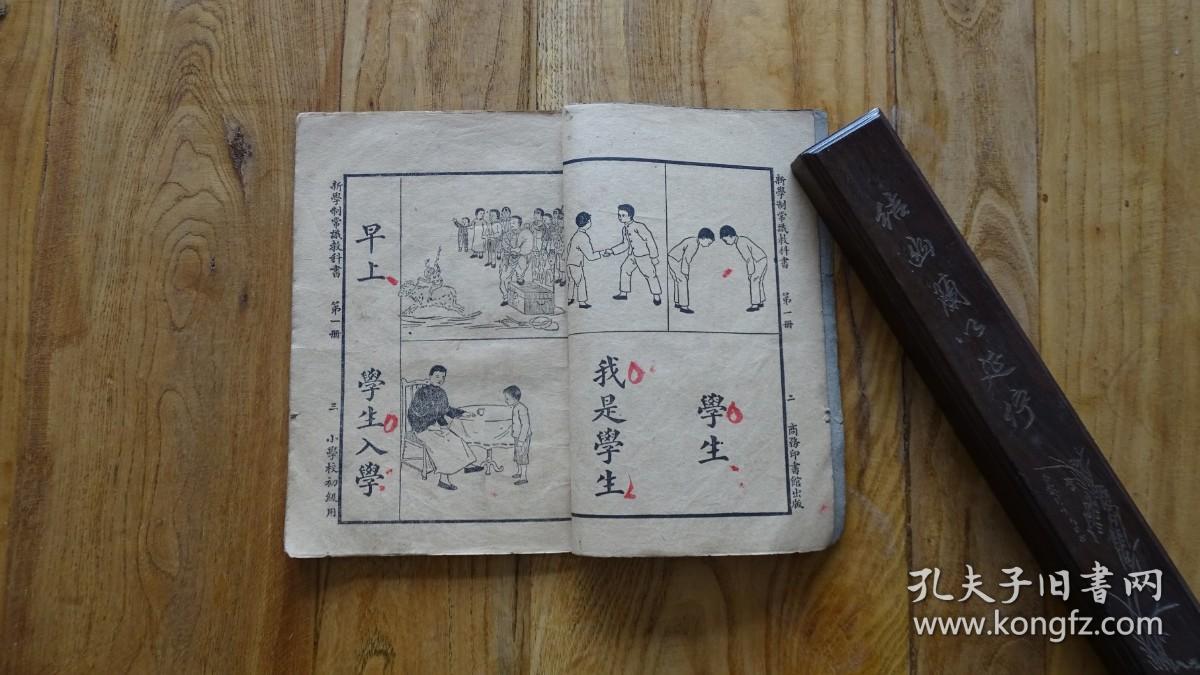 新學制常識教科書 第一冊 二 商務印書館出版
學生
我是學生
早上
學生入學
新學制常識教科書 第一冊 三 小學校初級用
結幽蘭以延佇
孔夫子旧書网
www.kongfz.com